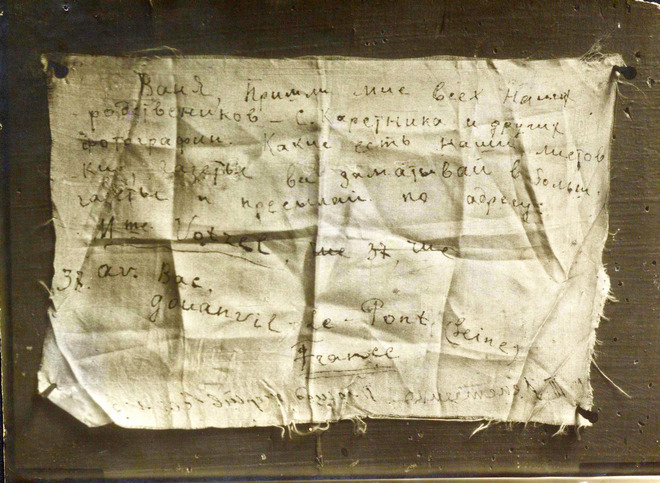 Ваня, Пришли мне всех наших
родственников – С. Каретника и других
фотографии. Какие есть наши листов
ки, газеты все заматывай в больш.
газеты и пресылай по адресу:
Mme
37. av. Bac.
le - Pont, (Seine)
France